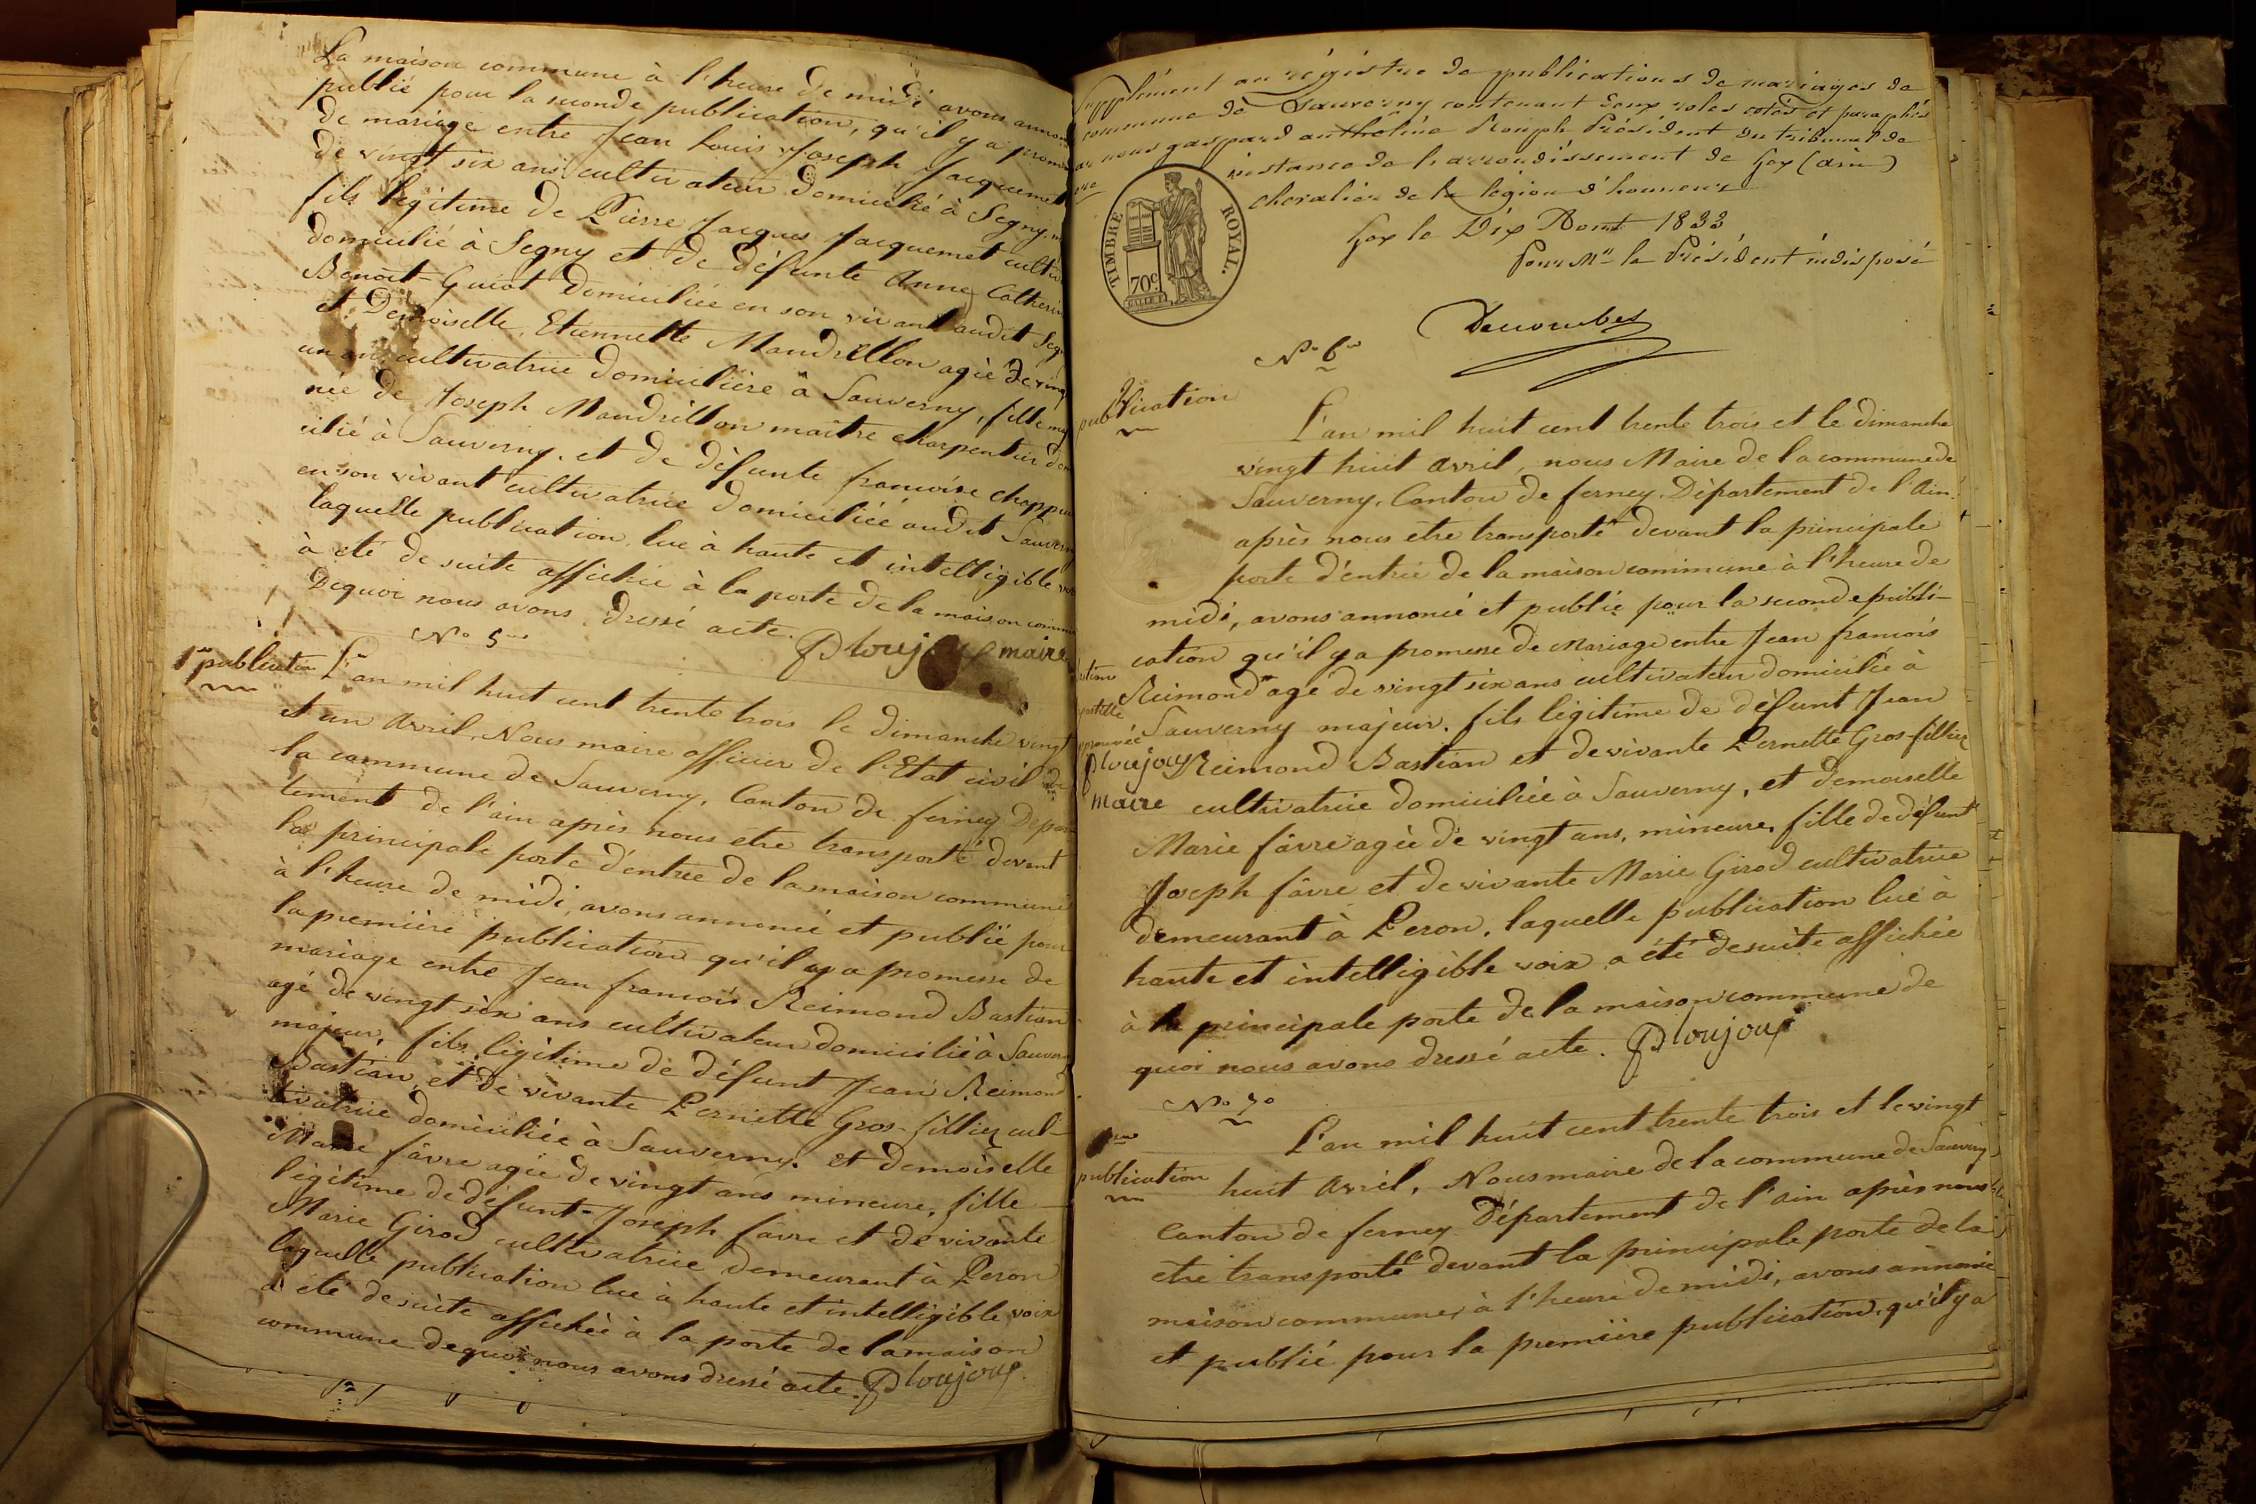 La maison commune à l'heure de midi avons annon
publié pour la seconde publication, qu'il y a prome
de mariage entre Jean Louis Joseph Jacquemet
de vingt six ans cultivateur domicilié à Segny
fils légitime de Pierre Jacques Jacquemet cultiv
domicilié à Segny et de défunte Anne Catherine
Benoit-Guiot domiciliée en son vivant audit Seg
et Demoiselle Etiennette Mandrillon agée de vingt
un ans cultivatrice domicilière à Sauverny, fille
née de Joseph Mandrillon maitre charpentier dom
icilié à Sauverny, et de défunte francoise Chappui
en son vivant cultivatrice domiciliée audit Sauverny
laquelle publication lue à haute et intelligible voix
à été de suite affichée à la porte de la maison commu
Dequoi nous avons dressé acte. Ploujoux maire
N° 5
1re publication L'an mil huit cent trente trois le dimanche vingt
et un Avril, Nous maire officier de l'Etat civil de
la commune de Sauverny, Canton de ferney Dépar
tement de l'ain après nous etre transporté devant
la principale porte d'entrée de la maison commune
à l'heure de midi, avons annoncé et publié pour
la première publication qu'il y a promesse de
mariage entre Jean francois Reimond Bastian
agé de vingt six ans cultivateur domicilié à Sauverny
majeur, fils légitime de défunt Jean Reimond
Bastian, et de vivante Pernette Gros-fillier cul-
tivatrice domiciliée à Sauverny. et demoiselle
Marie fâvre agée de vingt ans mineure, fille
légitime de défunt Joseph favre et de vivante
Marie Girod cultivatrice demeurant à Peron
laquelle publication lue à haute et intelligible voix
à été de suite affichée à la porte de la maison
commune dequoi nous avons dressé acte. Ploujoux
Supplément au régistre de publications de mariages de
commune de Sauverny contenant deux roles cotés et paraphés
par nous gaspard anthelme Rouph Président du tribunal de
instance de l'arrondissement de Gex (ain)
chevalier de la légion d'honneur
TIMBRE ROYAL.
70c.
Gex le Dix Aout 1833
Pour Mr le Président indisposé
N° 6
publication
L'an mil huit cent trente trois et le dimanche
vingt huit avril, nous Maire de la commune de
Sauverny, Canton de ferney, Département de l'Ain.
après nous être transporté devant la principale
porte d'entrée de la maison commune à l'heure de
midi, avons annoncé et publié pour la seconde publi-
cation qu'il y a promesse de Mariage entre Jean francois
Reimond agé de vingt six ans cultivateur domicilié à
Sauverny majeur, fils légitime de défunt Jean
Ploujoux Reimond Bastian et de vivante Pernette Gros-fillier
maire cultivatrice domiciliée à Sauverny, et demoiselle
Marie fâvre agée de vingt ans, mineure, fille de défunt
Joseph fâvre et de vivante Marie Girod cultivatrice
demeurant à Peron, laquelle publication lue à
haute et intelligible voix a été de suite affichée
à la principale porte de la maison commune de
quoi nous avons dressé acte. Ploujoux
N° 7
1re
publication
L'an mil huit cent trente trois et le vingt
huit Avril, Nous maire de la commune de Sauverny
Canton de ferney Département de l'ain après nous
etre transporté devant la principale porte de la
maison commune, à l'heure de midi, avons annoncé
et publié pour la première publication, qu'il y a